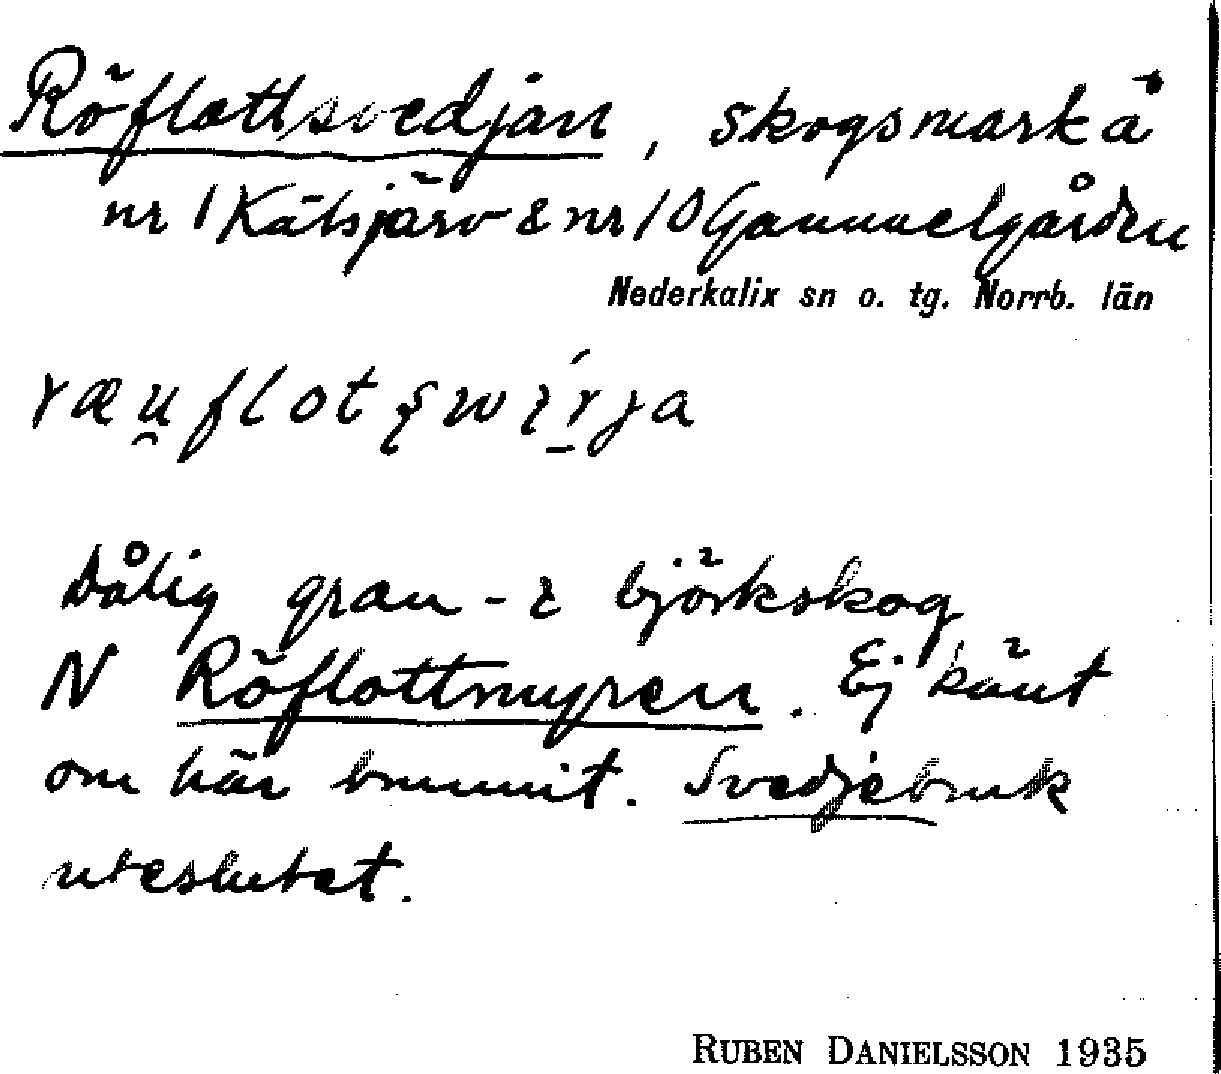 Röflottsvedjan, skogsmark å
nr 1 Kätsjärv & nr 10 Gammelgården
Nederkalix sn o. tg. Norrb. län
Dålig gran- & björkskog
N Röflottmyren. Ej känt
om här brunnit. Svedjebruk
uteslutet.
RUBEN DANIELSSON 1935